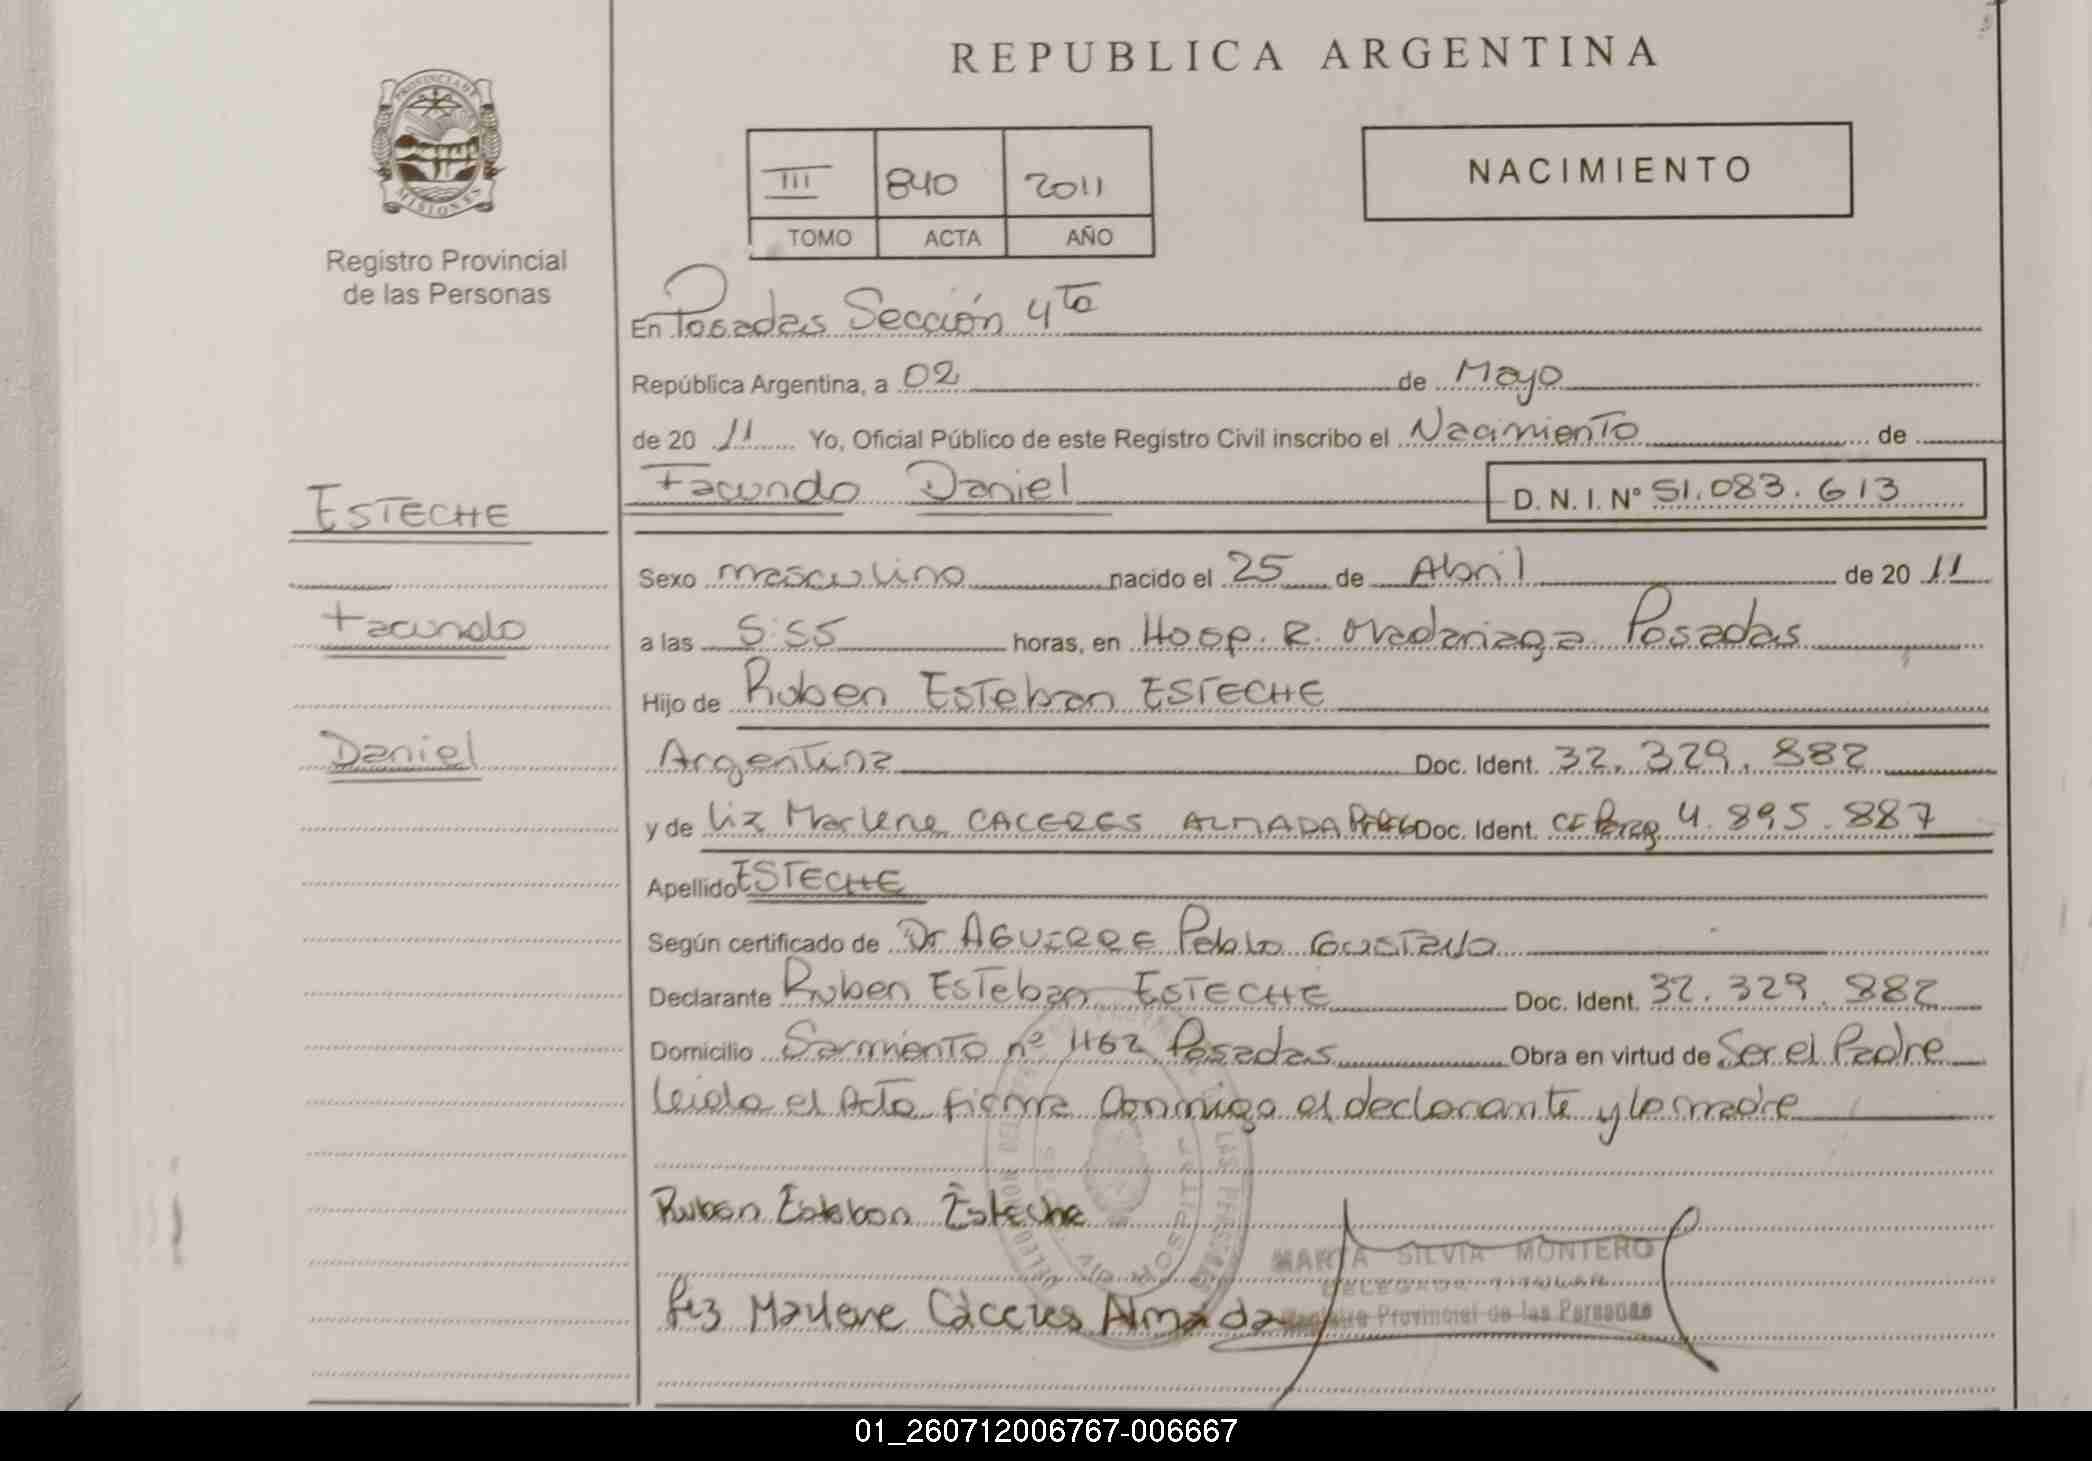 REPUBLICA ARGENTINA
PROVINCIA DE
MISIONES
Registro Provincial
de las Personas
III 840 2011
TOMO ACTA AÑO
NACIMIENTO
En Posadas Sección 4ta
República Argentina, a 02 de Mayo
de 20 11 Yo, Oficial Público de este Registro Civil inscribo el Nacimiento de
Facundo Daniel D. N. I. Nº 51.083.613
ESTECHE
Sexo masculino nacido el 25 de Abril de 20 11
Facundo
a las 5:55 horas, en Hosp. R. Madariaga Posadas
Hijo de Ruben Esteban ESTECHE
Daniel
Argentina Doc. Ident. 32.329.882
y de Liz Marlene CACERES ALMADA Doc. Ident. 4.895.887
Apellido ESTECHE
Según certificado de Dr AGUIRRE Pablo Gustavo
Declarante Ruben Esteban ESTECHE Doc. Ident. 32.329.882
Domicilio Sarmiento nº 1162 Posadas Obra en virtud de Ser el Padre
leida el Acta firma conmigo el declarante y la madre
Ruben Esteban Esteche
MARTA SILVIA MONTERO
DELEGADA TITULAR
Registro Provincial de las Personas
Liz Marlene Cáceres Almada
01_260712006767-006667